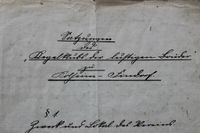 Satzungen
des
„Kegelklubs der lustigen Brüder“
zu
§ 1
Zweck und Lokal des Vereins